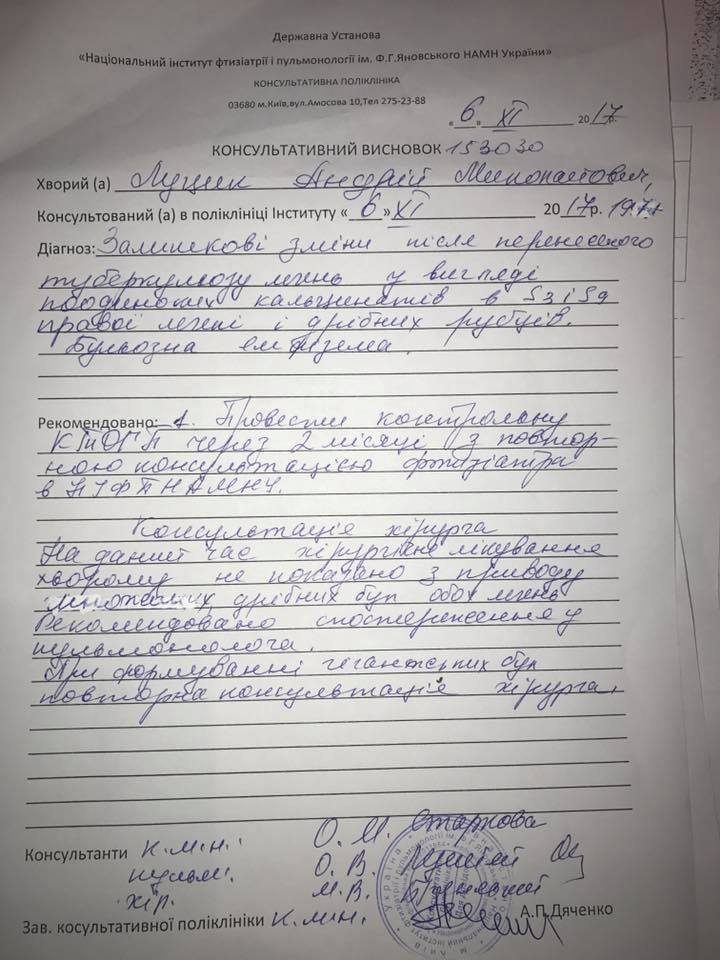 Державна Установа
«Національний інститут фтизіатрії і пульмонології ім. Ф.Г.Яновського НАМН України»
КОНСУЛЬТАТИВНА ПОЛІКЛІНІКА
03680 м.Київ,вул.Амосова 10,Тел 275-23-88
«6» XI 2017р.
КОНСУЛЬТАТИВНИЙ ВИСНОВОК 153030
Хворий (а) Луцик Андрій
Консультований (а) в поліклініці Інституту «6» XI 2017р.
Діагноз: Залишкові зміни після перенесеного
туберкульозу легень у вигляді
поодиноких кальцинатів в S3 і S9
правої легені і дрібних рубців.
Бульозна емфізема.
Рекомендовано: 1. Провести контрольну
КТОГП через 2 місяці з повтор-
ною консультацією фтизіатра
в НІФПНАМНУ.
Консультація хірурга
На даний час хірургічне лікування
хворому не показано з приводу
множинних дрібних бул обох легень
Рекомендовано спостереження у
пульмонолога.
При формуванні гігантських бул
повторна консультація хірурга.
Консультанти к.м.н. О. М.
пульм. О. В.
хір. М. В.
Зав. косультативної поліклініки к.м.н. А.П.Дяченко